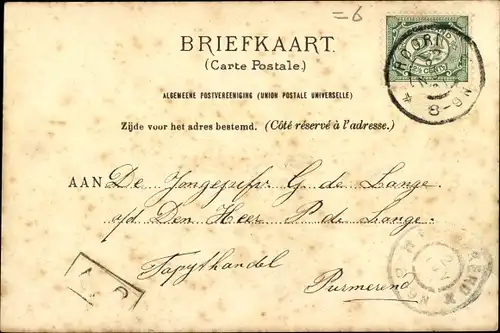 =6
BRIEFKAART.
(Carte Postale.)
ALGEMEENE POSTVEREENIGING (UNION POSTALE UNIVERSELLE)
Zijde voor het adres bestemd. (Côté réservé à l'adresse.)
AAN De Jongejufr G de Lange.
a/d Den Heer P de Lange.
Tapythandel
Purmerend
HOORN
8-9N